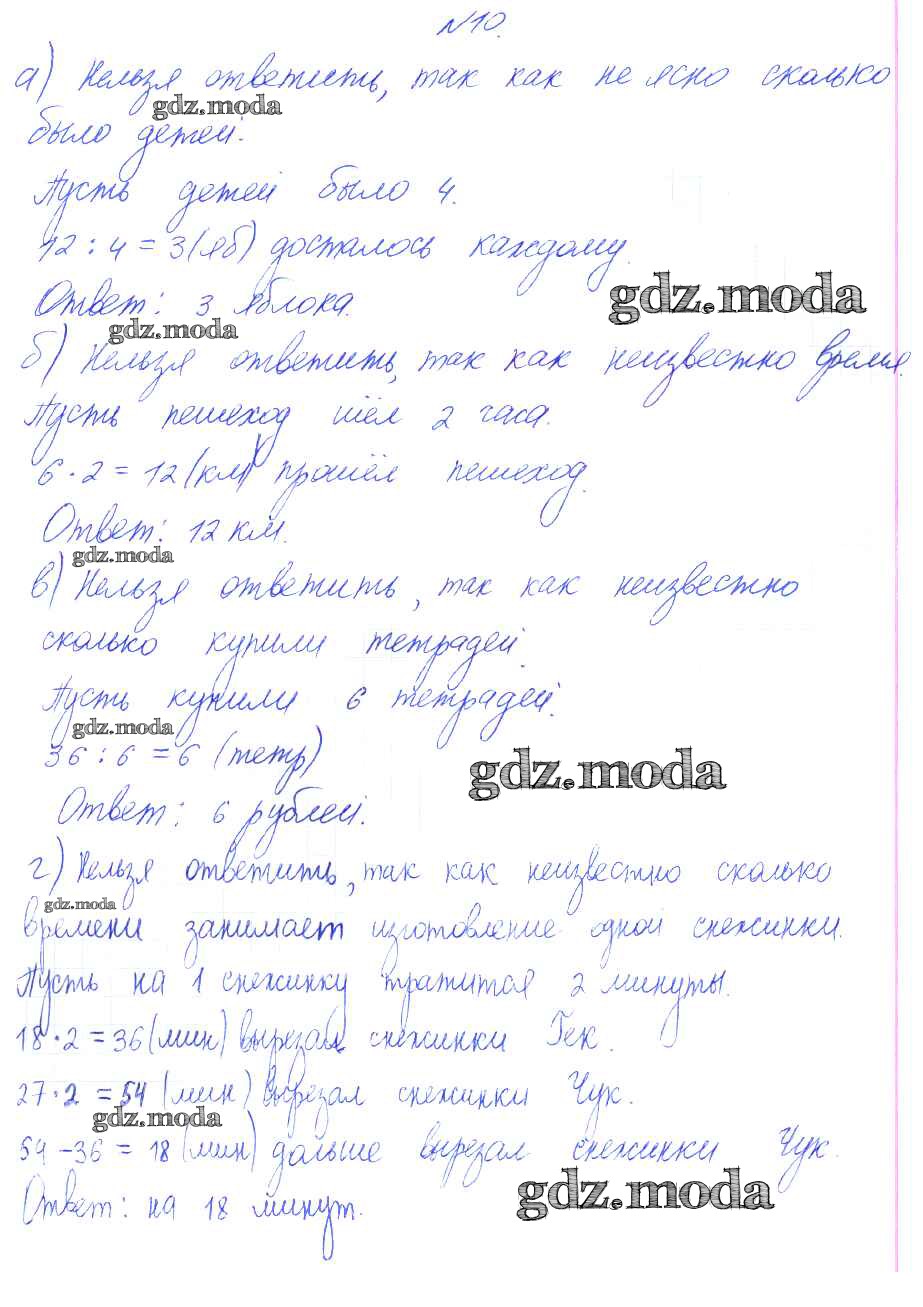 №10.
а) Нельзя ответить, так как не ясно сколько
gdz.moda
было детей.
Пусть детей было 4.
12 : 4 = 3 (яб) досталось каждому.
gdz.moda
Ответ: 3 яблока.
gdz.moda
б) Нельзя ответить, так как неизвестно время.
Пусть пешеход шёл 2 часа.
6 · 2 = 12 (км) прошёл пешеход.
Ответ: 12 км.
gdz.moda
в) Нельзя ответить, так как неизвестно
сколько купили тетрадей.
Пусть купили 6 тетрадей.
gdz.moda
36 : 6 = 6 (тетр)
gdz.moda
Ответ: 6 рублей.
г) Нельзя ответить, так как неизвестно сколько
gdz.moda
времени занимает изготовление одной снежинки.
Пусть на 1 снежинку тратится 2 минуты.
18 · 2 = 36 (мин) вырезал снежинки Гек.
27 · 2 = 54 (мин) вырезал снежинки Чук.
gdz.moda
54 - 36 = 18 (мин) дальше вырезал снежинки Чук.
gdz.moda
Ответ: на 18 минут.